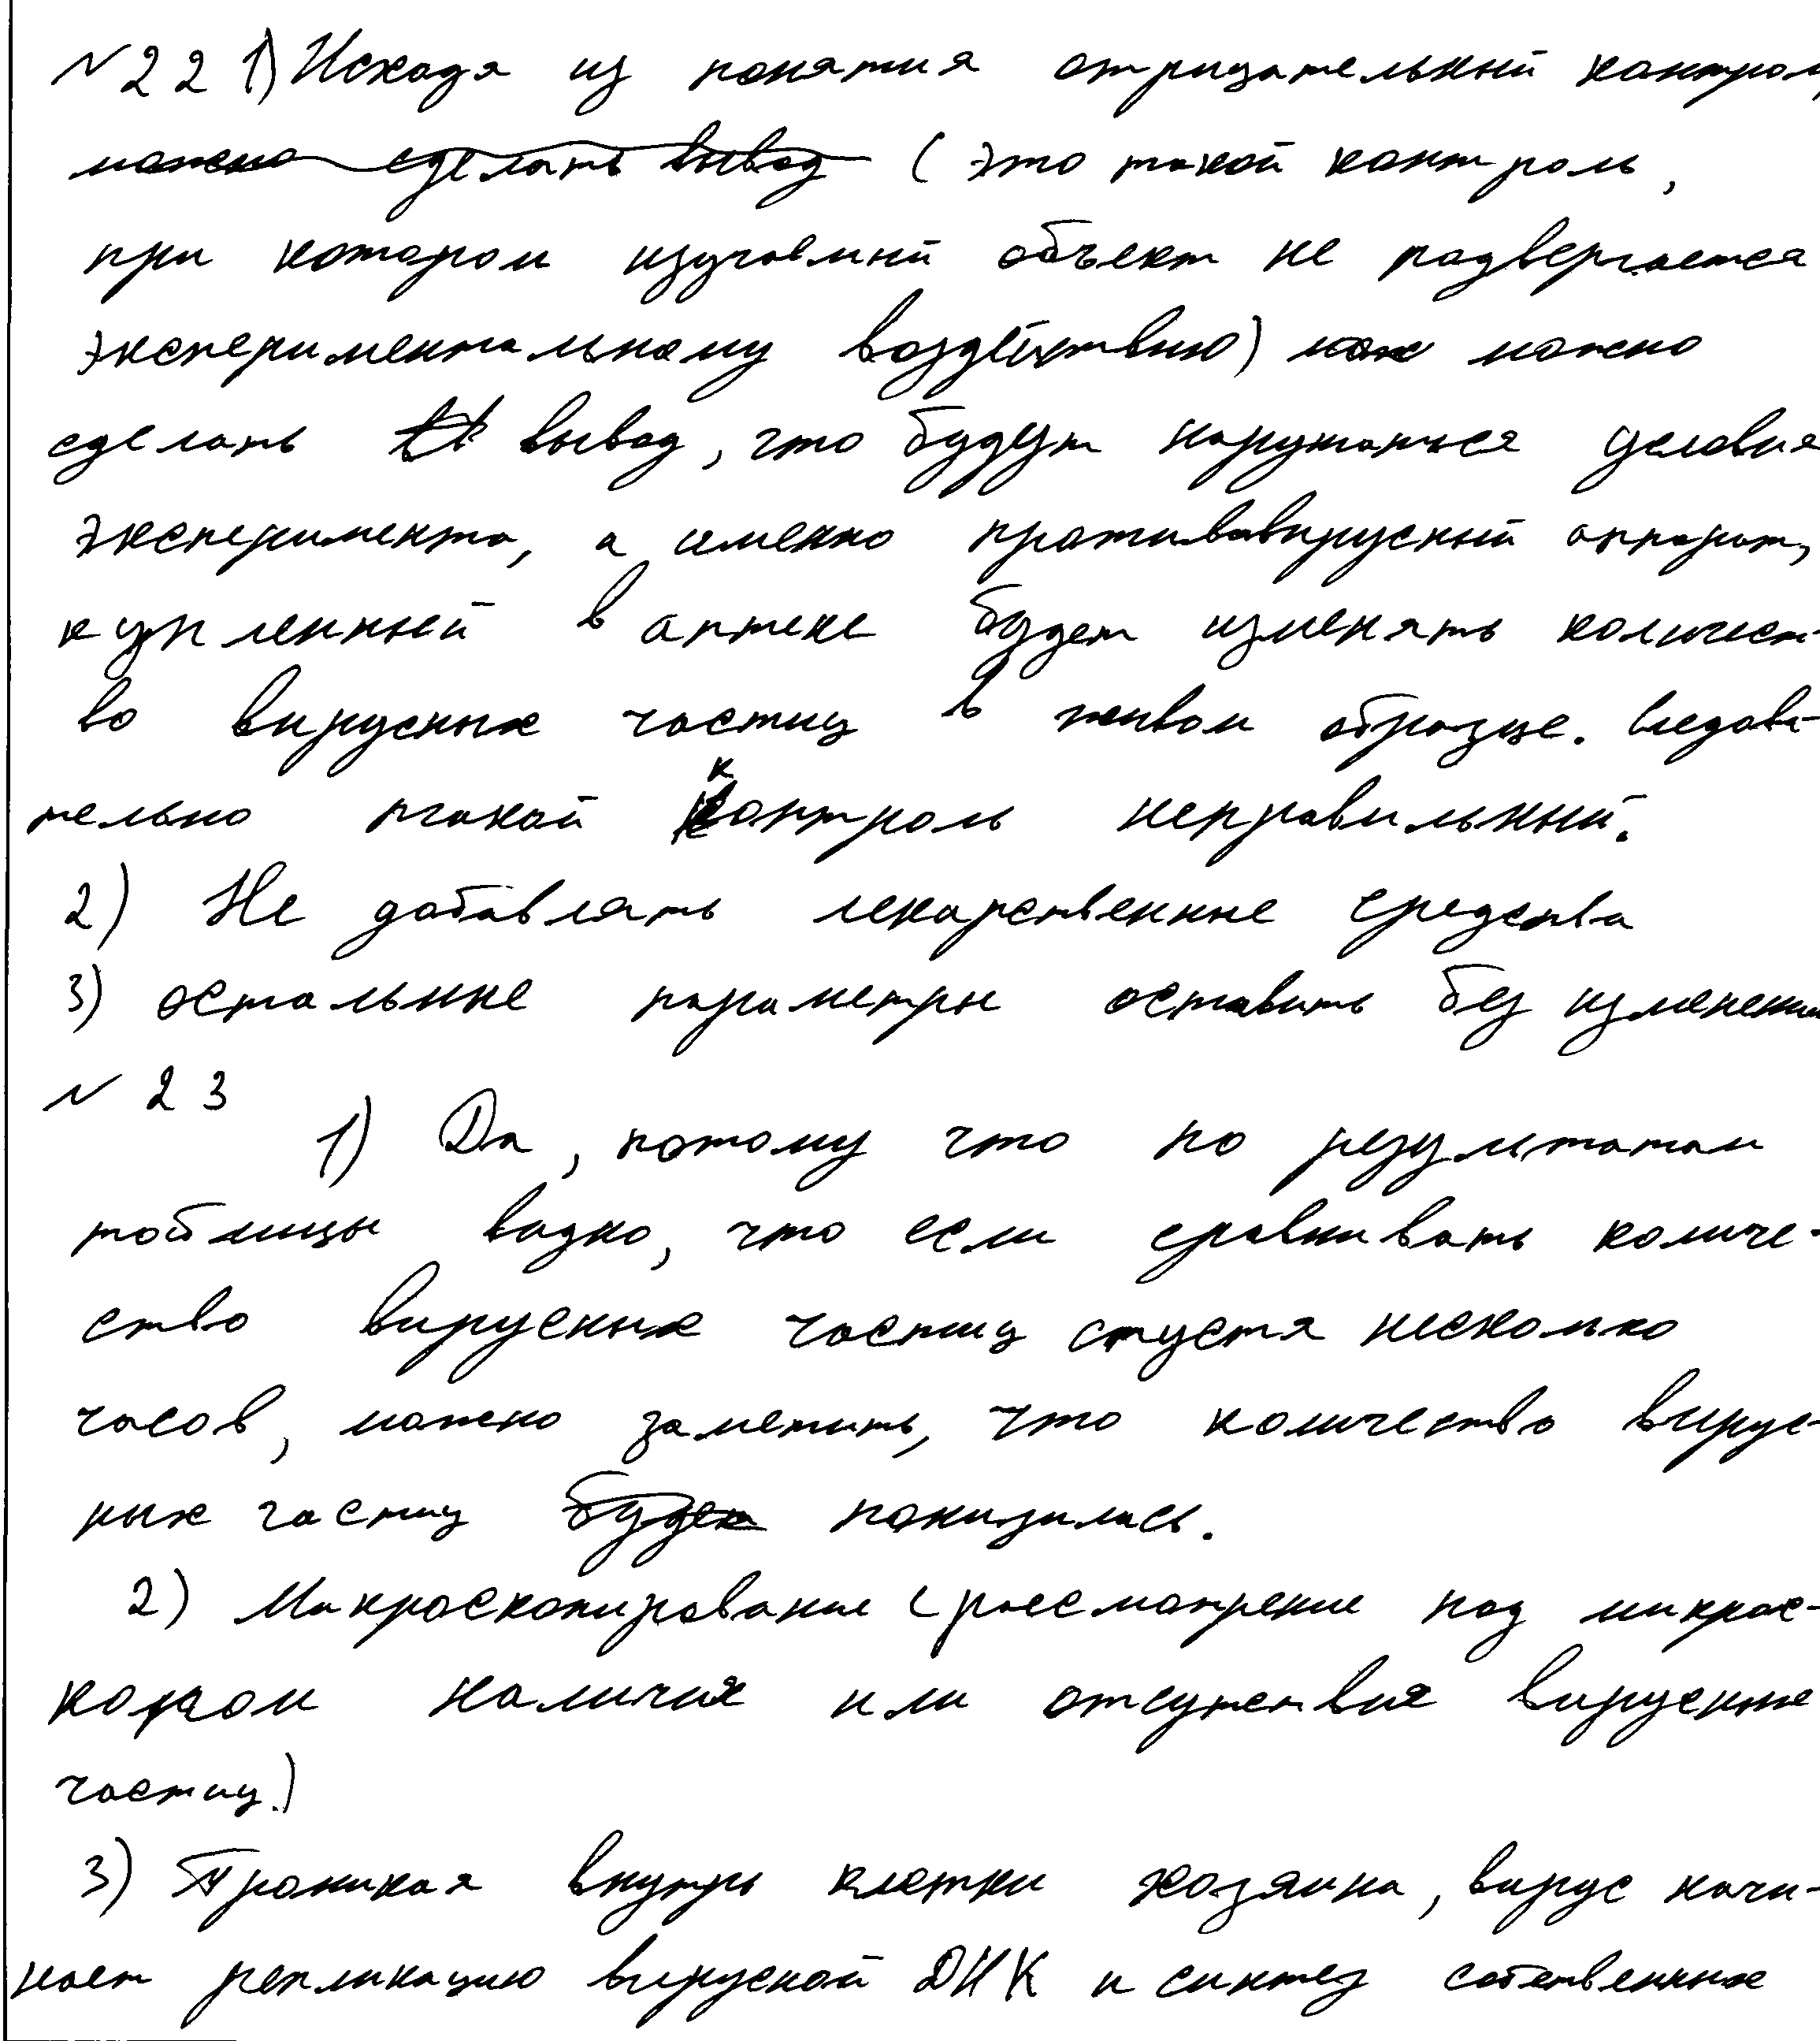 №22 1) Исходя из понятия отрицательный контроль
можно сделать вывод (это такой контроль,
при котором изучаемый объект не подвергается
экспериментальному воздействию) мож можно
сделать вывод, что будут нарушаться условия
эксперимента, а именно противовирусный аппарат,
купленный в аптеке будет изменять количест-
во вирусных частиц в живом образце. Следова-
тельно такой контроль неправильный.
2) Не добавлять лекарственные средства
3) остальные параметры оставить без изменений
№ 23
1) Да, потому что по результатам
таблицы видно, что если сравнивать количе-
ство вирусных частиц спустя несколько
часов, можно заметить, что количество вирус-
ных частиц будет понизилась.
2) Микроскопирование (рассмотрение под микрос-
копом наличия или отсутствия вирусных
частиц.)
3) Проникая внутрь клетки хозяина, вирус начи-
нает репликацию вирусной ДНК и синтез собственных